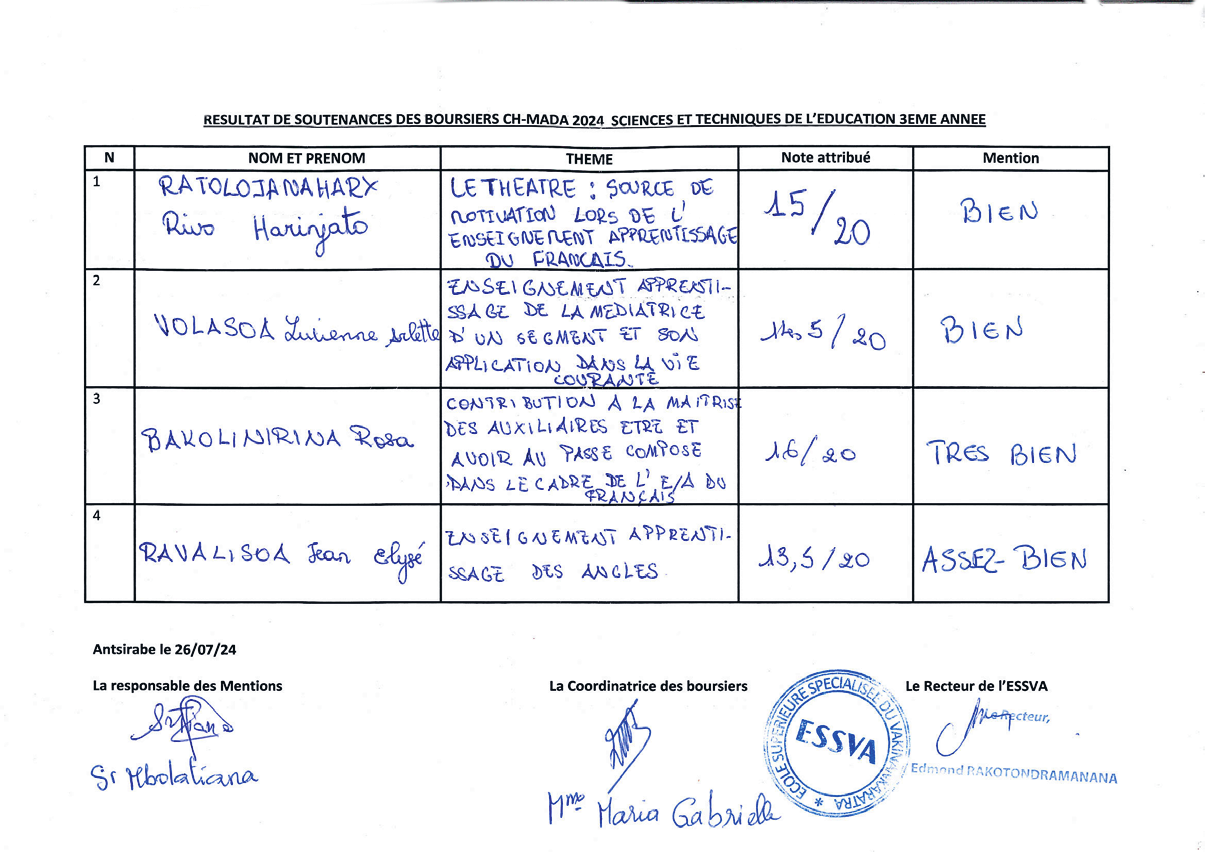 RESULTAT DE SOUTENANCES DES BOURSIERS CH-MADA 2024 SCIENCES ET TECHNIQUES DE L'EDUCATION 3EME ANNEE
N NOM ET PRENOM THEME Note attribué Mention
1
RATOLOJANAHARY
Rivo Harinjato
LE THEATRE : SOURCE DE
MOTIVATION LORS DE L'
ENSEIGNEMENT APPRENTISSAGE
DU FRANCAIS.
15/20
BIEN
2
VOLASOA Lucienne Arlette
ENSEIGNEMENT APPRENTI-
SSAGE DE LA MEDIATRICE
D'UN SEGMENT ET SON
APPLICATION DANS LA VIE
COURANTE
14,5/20
BIEN
3
BAKOLINIRINA Rosa
CONTRIBUTION A LA MAITRISE
DES AUXILIAIRES ETRE ET
AVOIR AU PASSE COMPOSE
DANS LE CADRE DE L'E/A DU
FRANÇAIS
16/20
TRES BIEN
4
RAVALISOA Jean Elysé
ENSEIGNEMENT APPRENTI-
SSAGE DES ANGLES
13,5/20
ASSEZ-BIEN
Antsirabe le 26/07/24
La responsable des Mentions
La Coordinatrice des boursiers
Le Recteur de l'ESSVA
Sr Mbolatiana
Mme Maria Gabrielle
ECOLE SUPERIEURE SPECIALISEE DU VAKINANKARATRA
ESSVA
Le Recteur,
Edmond RAKOTONDRAMANANA